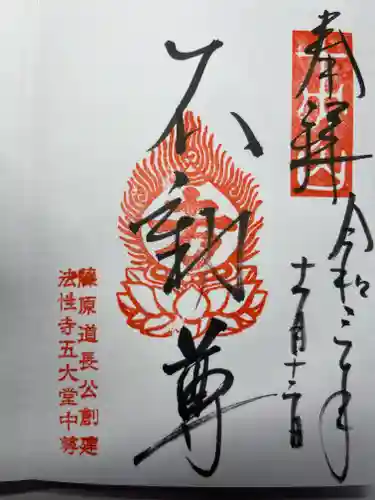 奉拝
令和三年
十一月十二日
不動尊
藤原道長公創建
法性寺五大堂中尊